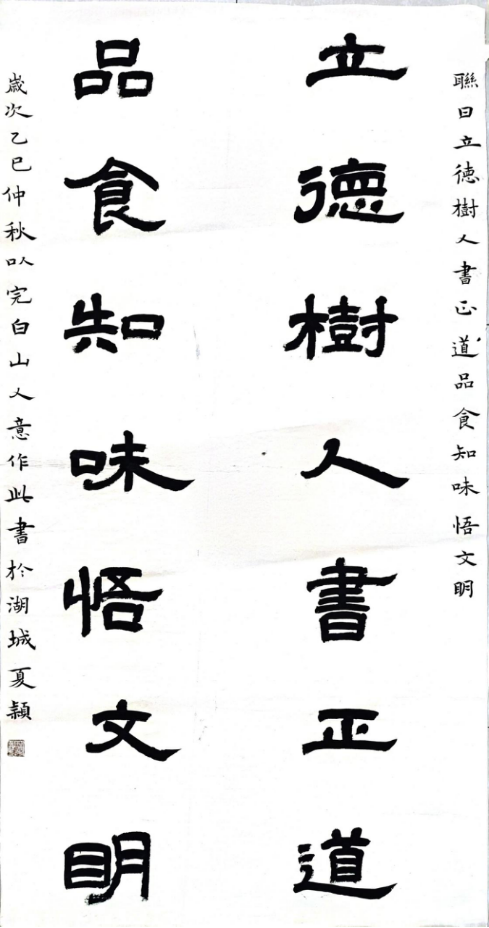 聯曰立德樹人書正道品食知味悟文明
立德樹人書正道
品食知味悟文明
歲次乙巳仲秋以完白山人意作此書於湖城夏穎